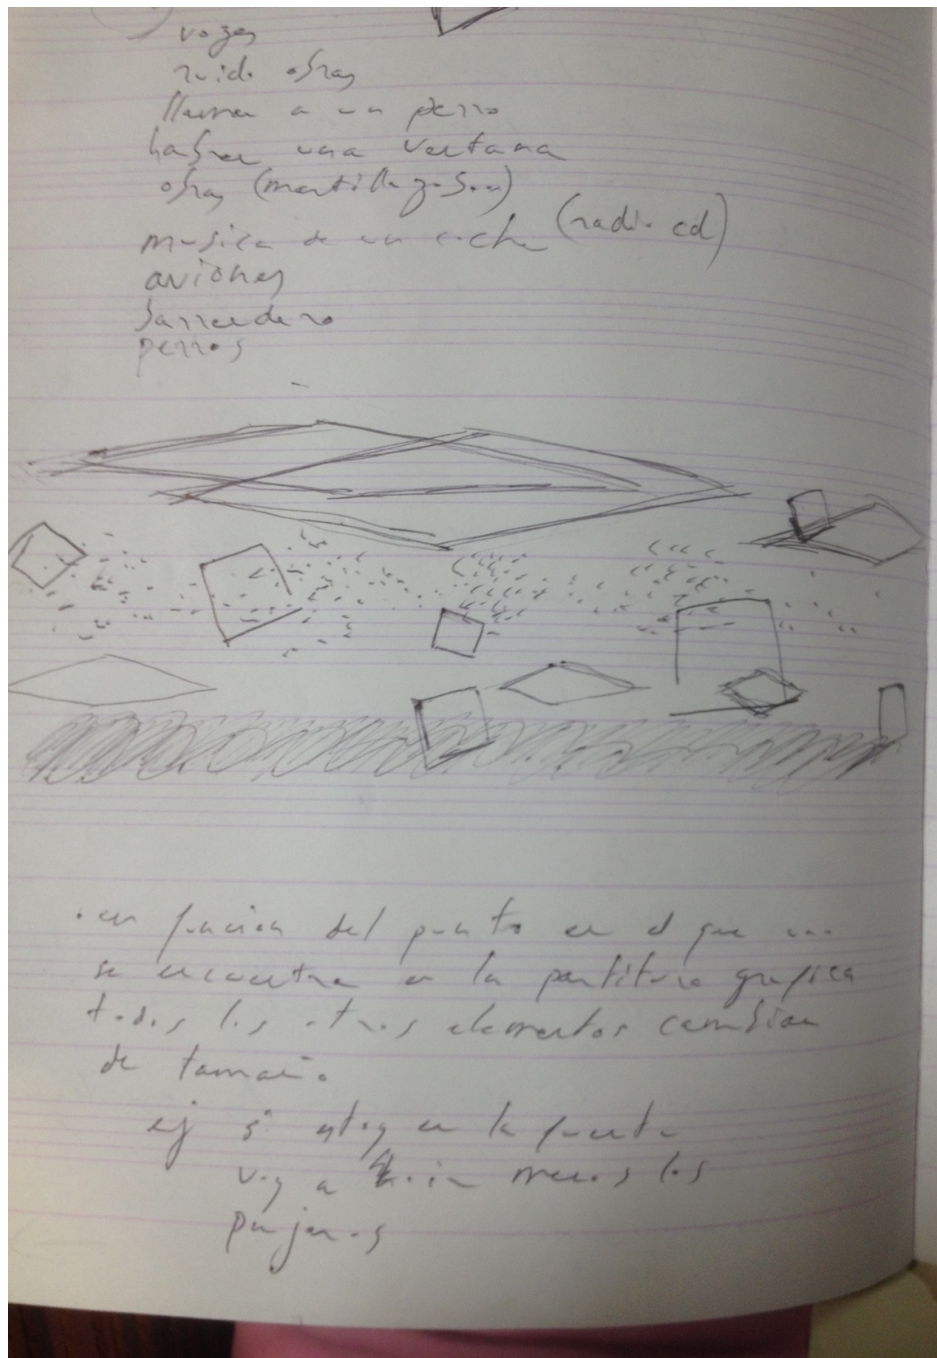 vozes
ruido obras
llama a un perro
habre una ventana
obras (martillazos)
musica de un coche (radio cd)
aviones
barrendero
perros
. en funcion del punto en el que uno
se encuentra en la partitura grafica
todos los otros elementos cambian
de tamaño
ej si estoy en la fuente
voy a oir menos los
pajaros